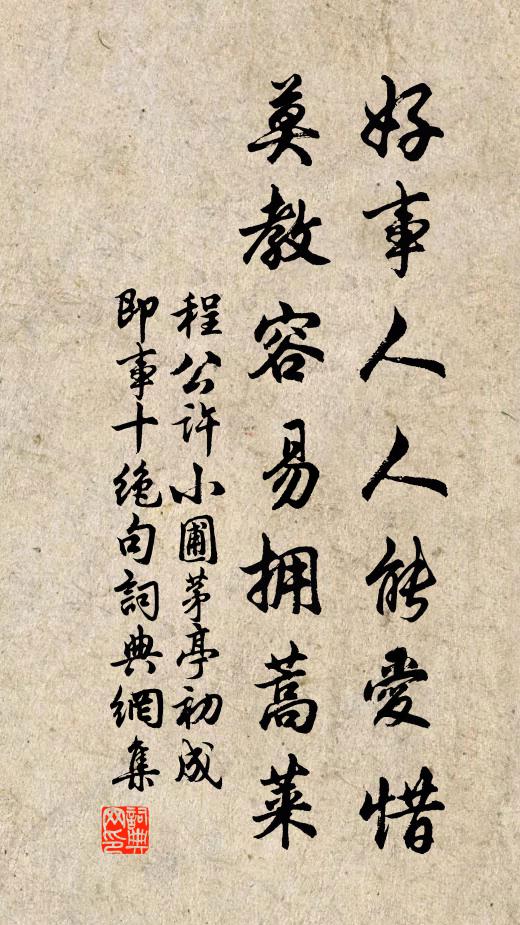 好事人人能愛惜
莫教容易拥蒿萊
程公許小圃茅亭初成
即事十絶句詞典網集
詞典网印